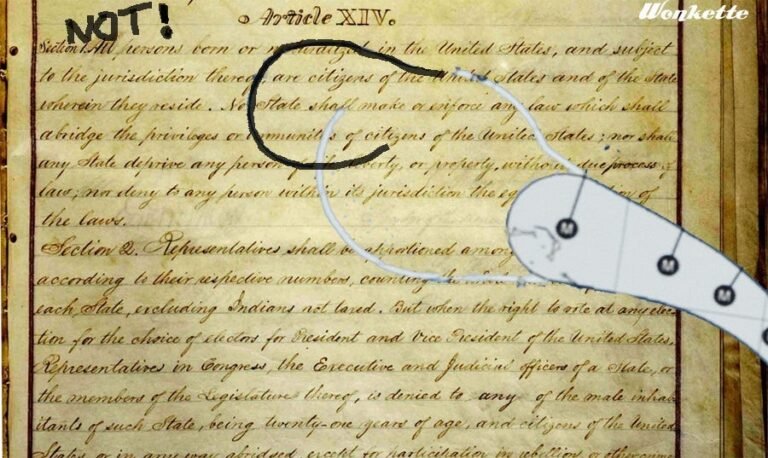 Wonkette
Article XIV.
NOT!
Section 1. All persons born or naturalized in the United States, and subject
to the jurisdiction thereof, are citizens of the United States and of the State
wherein they reside. No State shall make or enforce any law which shall
abridge the privileges or immunities of citizens of the United States; nor shall
any State deprive any person of liberty, or property, without due process of
law; nor deny to any person within its jurisdiction the of
the laws.
Section 2. Representatives shall be apportioned among
according to their respective numbers, counting the whole
each State, excluding Indians not taxed. But when the right to vote at any elec
tion for the choice of electors for President and Vice President of the United States,
Representatives in Congress, the Executive and Judicial officers of a State, or
the members of the Legislature thereof, is denied to any of the male inhab
itants of such State, being twenty-one years of age, and citizens of the United
States, or in any way abridged, except for participation in rebellion, or other crime
M
M
M